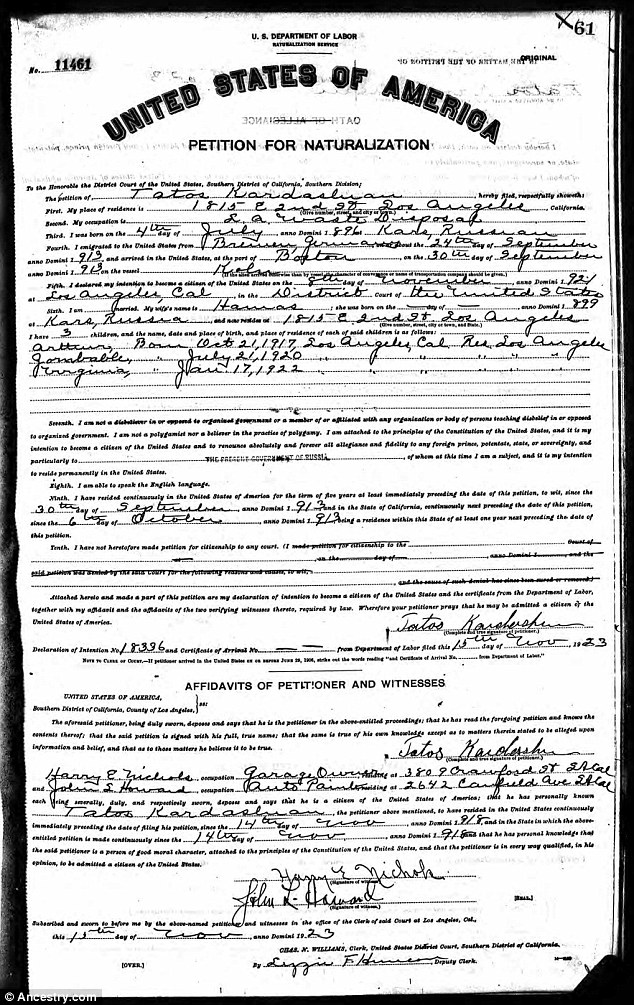 61
U. S. DEPARTMENT OF LABOR
NATURALIZATION SERVICE
No. 11461
ORIGINAL
IN THE MATTER OF THE PETITION OF
UNITED STATES OF AMERICA
OATH OF ALLEGIANCE
PETITION FOR NATURALIZATION
To the Honorable the District Court of the United States, Southern District of California, Southern Division:
The petition of Tatos Kardashian, hereby filed, respectfully showeth:
First. My place of residence is 1815 E 2nd St Los Angeles, California.
(Give number, street, and city or town.)
Second. My occupation is L. A. Waste Disposal
Third. I was born on the 4th day of July anno Domini 1896 Kars, Russian
Fourth. I emigrated to the United States from Bremen Germany on the 24th day of September
anno Domini 1913 and arrived in the United States, at the port of Boston on the 30th day of September
anno Domini 1913 on the vessel
Fifth. I declared my intention to become a citizen of the United States on the 8th day of November anno Domini 1921
at Los Angeles, Cal in the District Court of the United States
Sixth. I am married. My wife's name is Hamas; she was born on the day of anno Domini 1899
at Kars, Russia and resides at 1815 E 2nd St Los Angeles
(Give number, street, city or town, and State.)
I have 3 children, and the name, date and place of birth, and place of residence of each of said children is as follows:
Arthur, Born Oct 21, 1917, Los Angeles, Cal Res. Los Angeles
" July 21, 1920 " " " "
Virginia, " Jan 17, 1922 " " " "
Seventh. I am not a disbeliever in or opposed to organized government or a member of or affiliated with any organization or body of persons teaching disbelief in or opposed
to organized government. I am not a polygamist nor a believer in the practice of polygamy. I am attached to the principles of the Constitution of the United States, and it is my
intention to become a citizen of the United States and to renounce absolutely and forever all allegiance and fidelity to any foreign prince, potentate, state, or sovereignty, and
particularly to THE PRESENT GOVERNMENT OF RUSSIA. of whom at this time I am a subject, and it is my intention
to reside permanently in the United States.
Eighth. I am able to speak the English language.
Ninth. I have resided continuously in the United States of America for the term of five years at least immediately preceding the date of this petition, to wit, since the
30th day of September anno Domini 1913 and in the State of California, continuously next preceding the date of this petition,
since the 6th day of October anno Domini 1913 being a residence within this State of at least one year next preceding the date of
this petition.
Tenth. I have not heretofore made petition for citizenship to any court. (I made petition for citizenship to the Court of
on the day of anno Domini 1 and the
said petition was denied by the said Court for the following reasons and causes, to wit,
and the cause of such denial has since been cured or removed.)
Attached hereto and made a part of this petition are my declaration of intention to become a citizen of the United States and the certificate from the Department of Labor,
together with my affidavit and the affidavits of the two verifying witnesses thereto, required by law. Wherefore your petitioner prays that he may be admitted a citizen of the
United States of America.
Tatos
(Complete and true signature of petitioner.)
Declaration of Intention No. 18396 and Certificate of Arrival No. from Department of Labor filed this 15th day of Nov 1923
NOTE TO CLERK OF COURT.—If petitioner arrived in the United States on or before June 29, 1906, strike out the words reading "and Certificate of Arrival No. from Department of Labor."
AFFIDAVITS OF PETITIONER AND WITNESSES
UNITED STATES OF AMERICA,
Southern District of California, County of Los Angeles, } ss:
The aforesaid petitioner, being duly sworn, deposes and says that he is the petitioner in the above-entitled proceedings; that he has read the foregoing petition and knows the
contents thereof; that the said petition is signed with his full, true name; that the same is true of his own knowledge except as to matters therein stated to be alleged upon
information and belief, and that as to those matters he believes it to be true.
Tatos
(Complete and true signature of petitioner.)
Harry E Nichols, occupation Garage Owner, residing at 3809 Crawford St LA Cal
and John L Howard, occupation Auto Painter, residing at 2642 Canfield Ave LA Cal
each being severally, duly, and respectively sworn, deposes and says that he is a citizen of the United States of America; that he has personally known
Tatos Kardashian, the petitioner above mentioned, to have resided in the United States continuously
immediately preceding the date of filing his petition, since the 14th day of Nov anno Domini 1918 and in the State in which the above-
entitled petition is made continuously since the 14th day of Nov anno Domini 1918 and that he has personal knowledge that
the said petitioner is a person of good moral character, attached to the principles of the Constitution of the United States, and that the petitioner is in every way qualified, in his
opinion, to be admitted a citizen of the United States.
Harry E Nichols
(Signature of witness)
John L. Howard [SEAL.]
(Signature of witness)
Subscribed and sworn to before me by the above-named petitioner and witnesses in the office of the Clerk of said Court at Los Angeles, Cal.,
this 15th day of Nov, anno Domini 1923
CHAS. N. WILLIAMS, Clerk, United States District Court, Southern District of California.
[OVER.] By Lizzie F Deputy Clerk.
© Ancestry.com